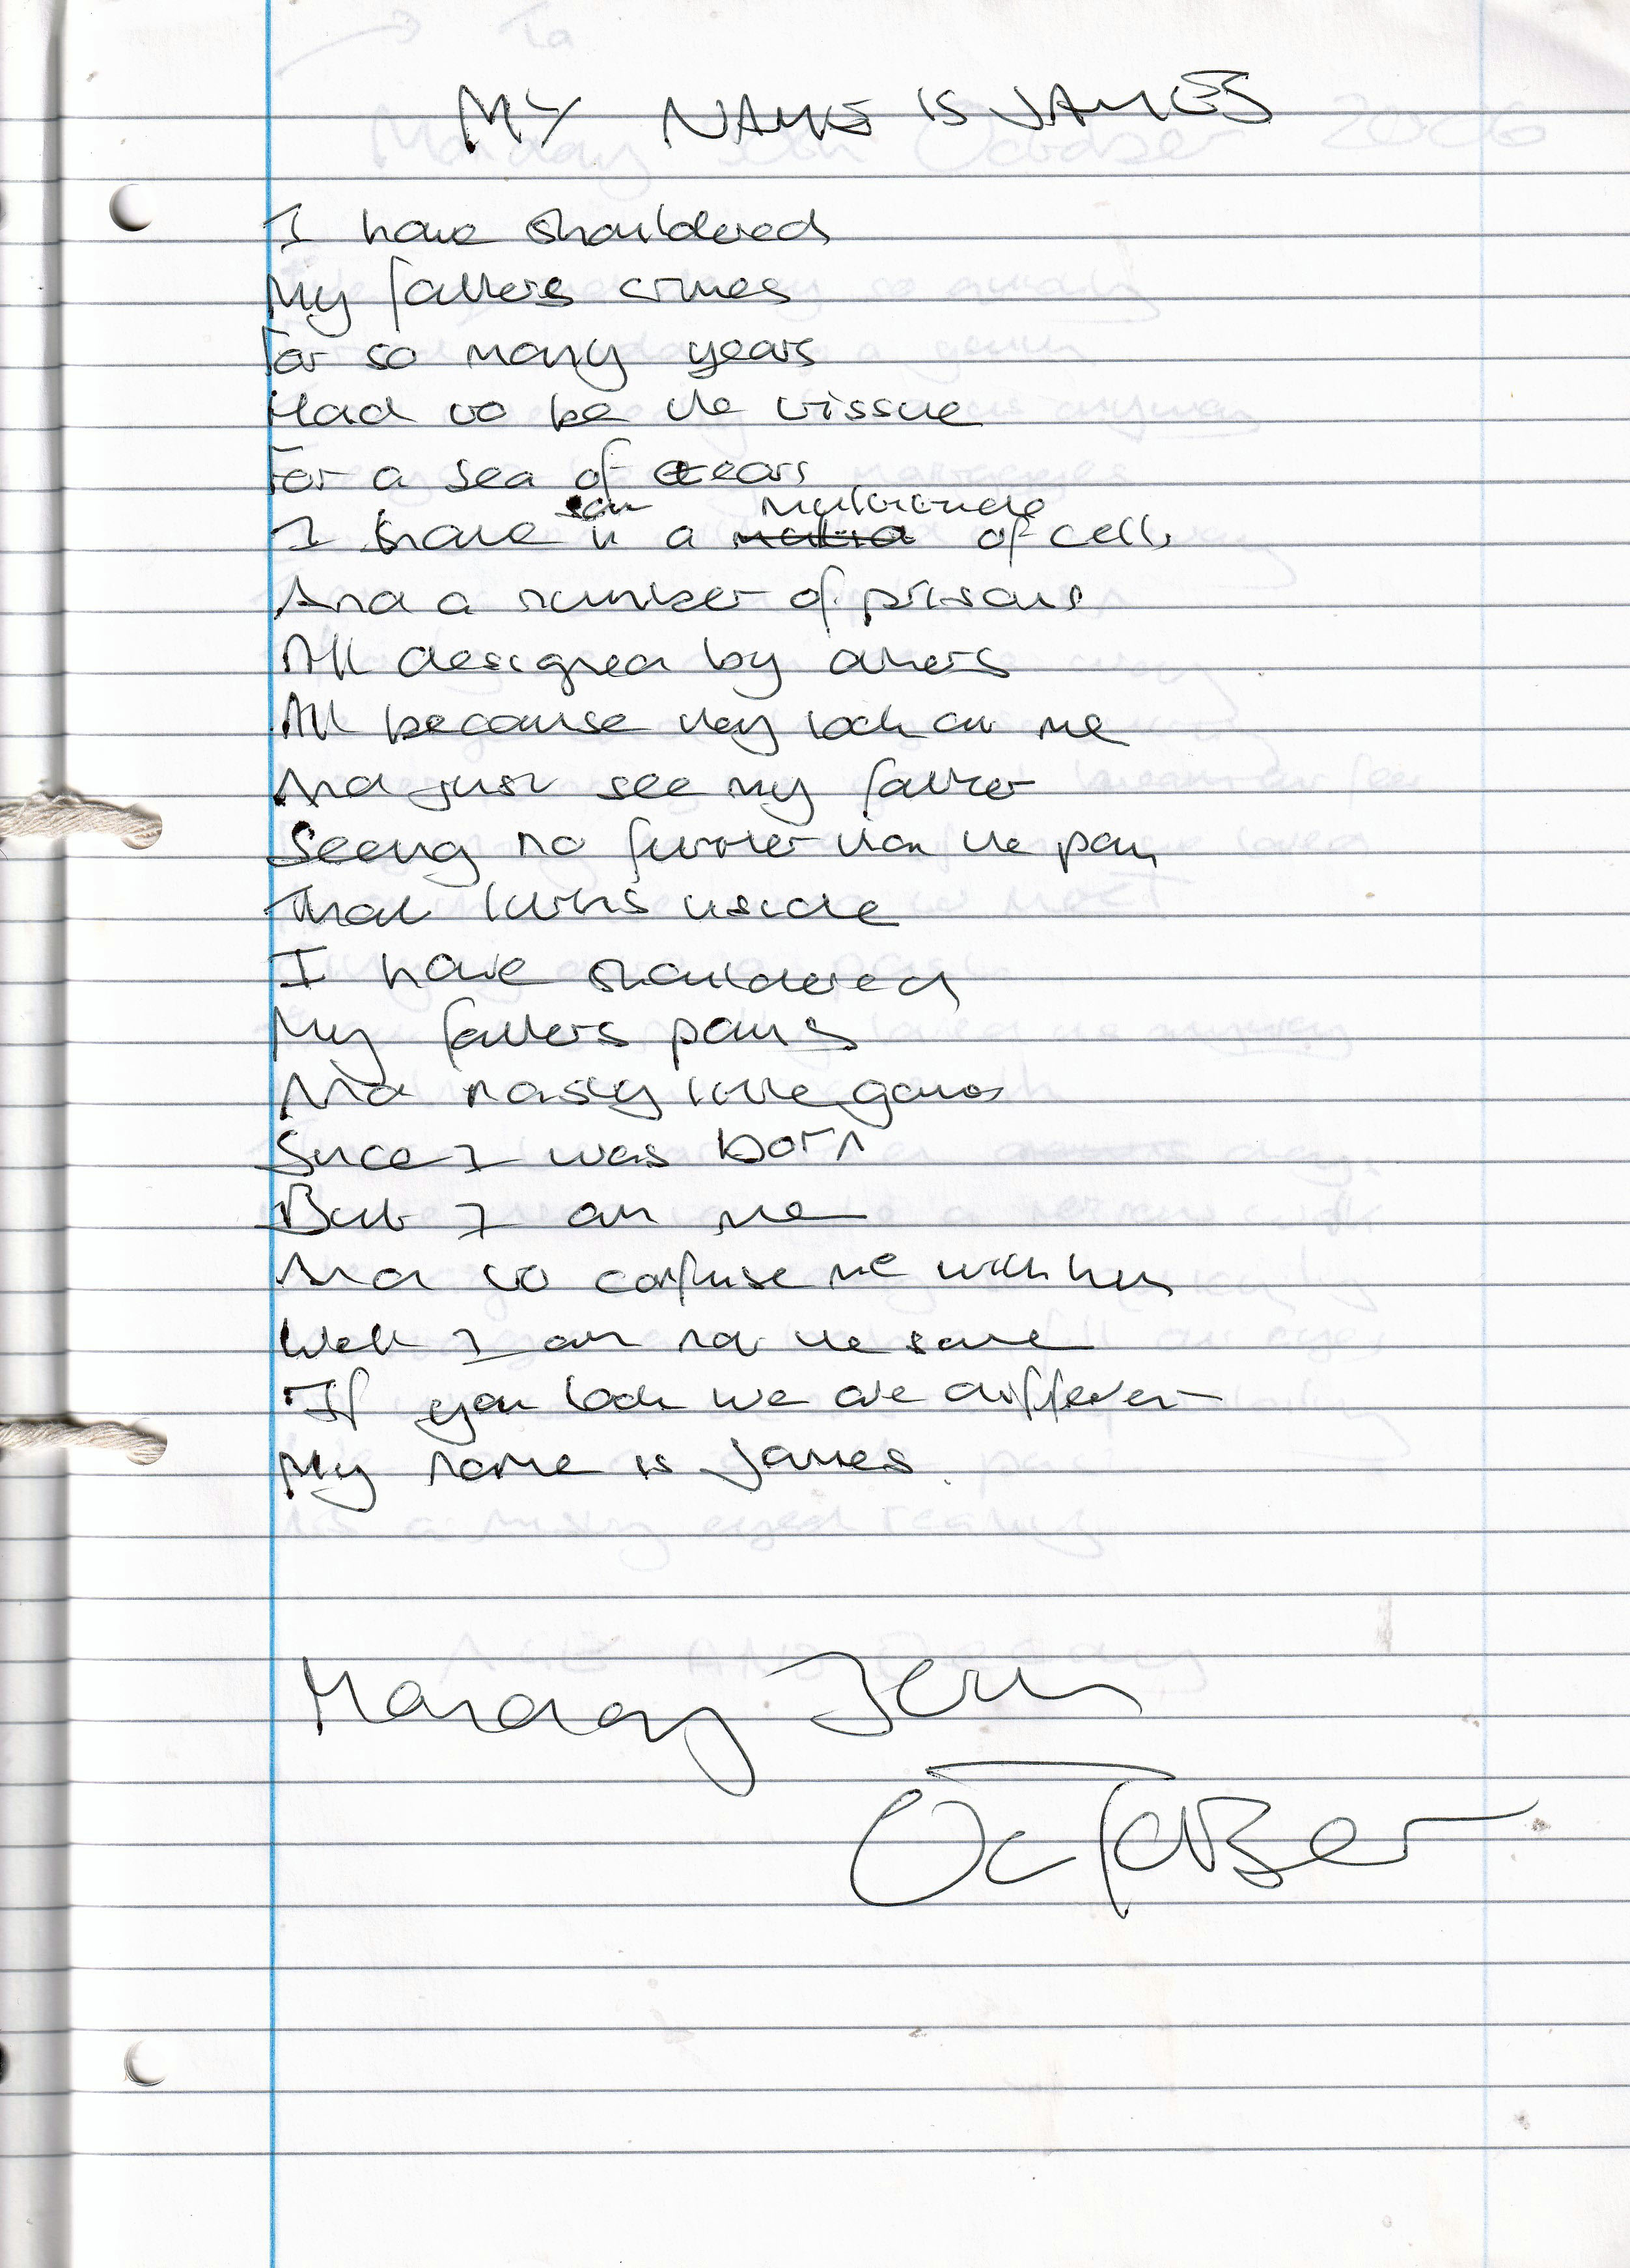 MY NAME IS JAMES
I have shouldered
My fathers crimes
For so many years
Had to be the tissue
For a sea of tears
I have sat in a multitude of cells
And a number of prisons
All designed by others
All because they look at me
And just see my father
Seeing no further than the pain
That lurks inside
I have shouldered
My fathers pains
And nasty little gains
Since I was born
But I am me
And to confuse me with him
Well I am not the same
If you look we are different
My name is James.
Monday 30th
October